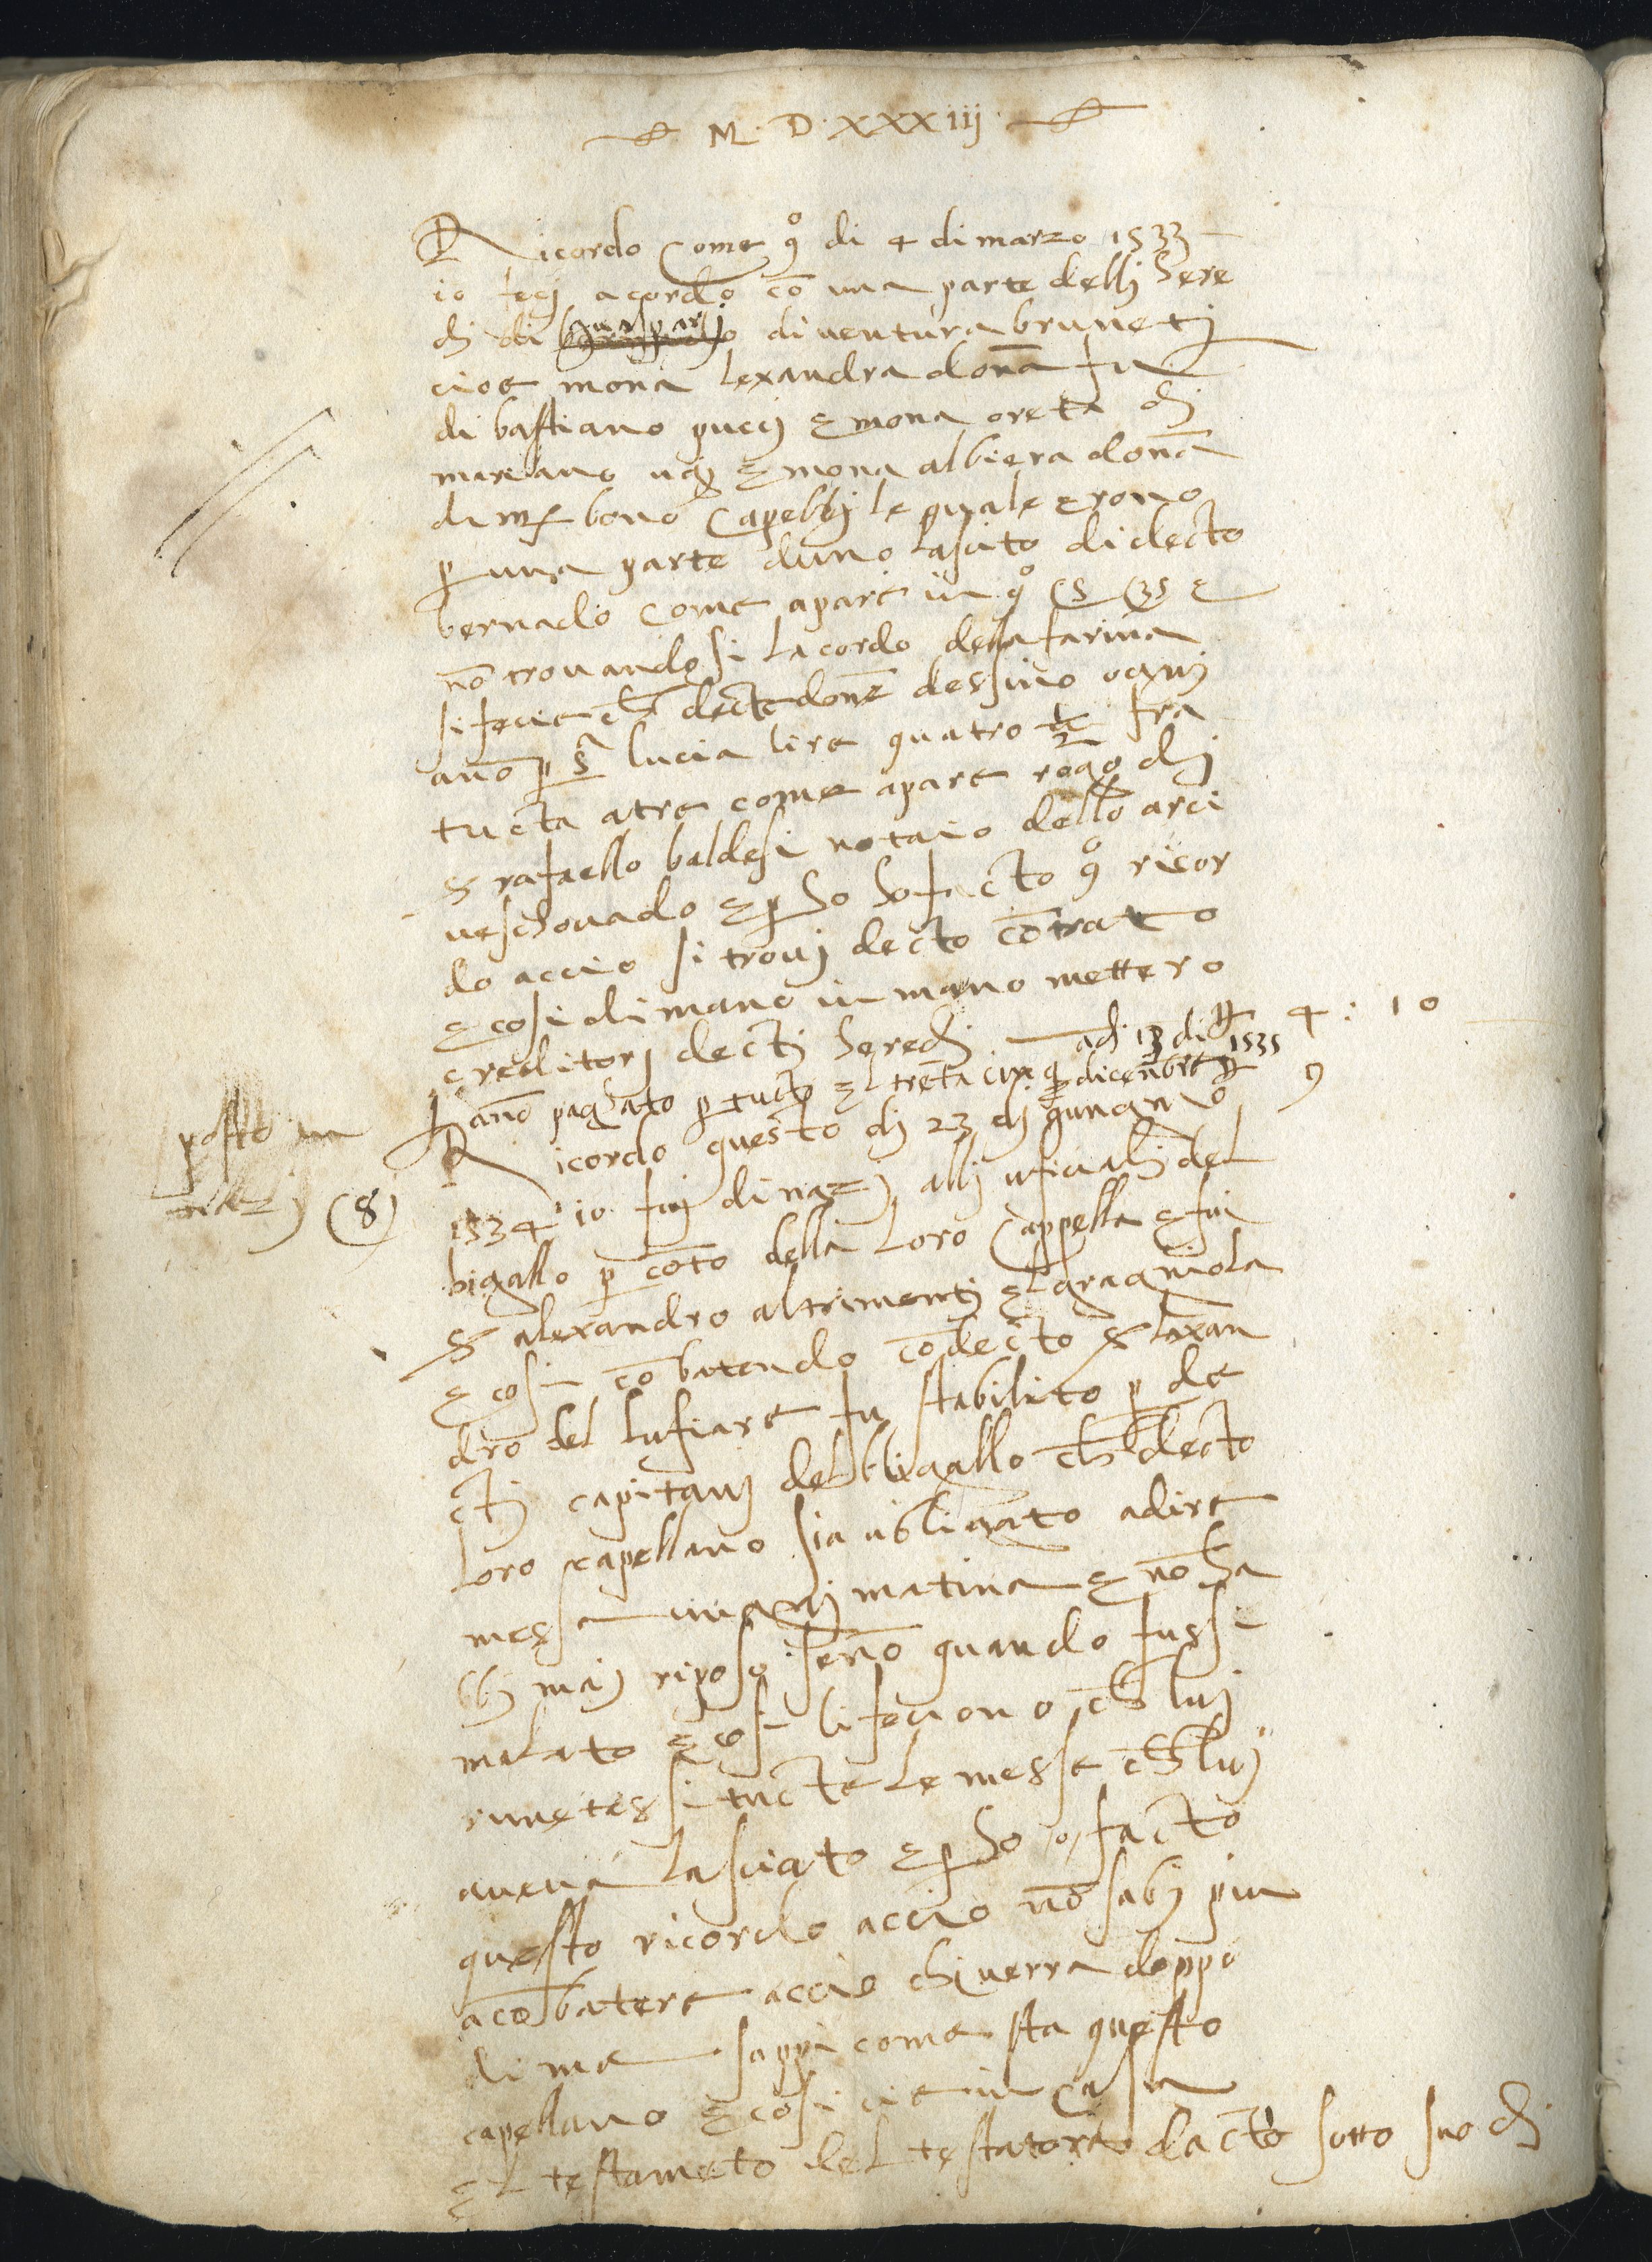 M D XXXiij
Ricordo Come qo di 4 di marzo 1533
io fecj acordo cō una parte dellj here
dj di guasparj di uentura brunetj
cioe mona lexandra donā fu
di bastiano puccj e mona oreta dj
mariano ugi e mona albiera donā
di mr bono Capellj le quale erono
p una parte duno lascito di decto
bernado Come apare in qo e
nō trouandosi lacordo della farina
si fecie ch decte donē dessino ognj
anō p sa lucia lire quatro 1/2 fra
tucta atre come apare rogo dj
s rafaello baldesi notaio dello arci
ueschouado e p ho ho facto qo ricor
do accio si trouj decto cōtrato
e cosi di mano in mano mettero
creditorj dectj heredj 4 : 10
adj 13 di
hanō paghato p tucto el trēta cinq dicēbre 1535
Ricordo questo dj 23 dj gungno
posto
(8)
1534 io fuj dinazj allj uficiali del
bigallo p cōto della loro Cappella e fu
s alexandro altrimentj el gragniola
e cosi cō batendo cō decto s lexan
dro del lufiare fu stabilito p de
ctj capitanj del bigallo ch decto
loro capellano sia ubligato a dire
messa ognj matina e nō ha
bbj maj riposo senō quando fussi
malato e cosi li feciono ch luj
rimetessi tucte le messe ch luj
aueua lasciato e p ho o facto
questo ricordo accio nō sabj piu
a cōbatere accio chi uerra doppo
di me sappi come sta questo
capellano e cosi cie in Casa
el testamēto del testatore dacto sotto suo dj